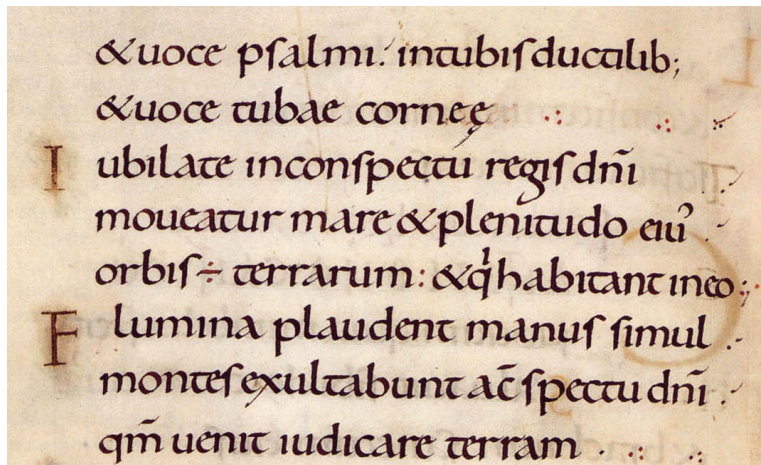 &uoce psalmi. intubisductilib;
&uoce tubae corneę
Iubilate inconspectu regisdñi
moueatur mare &plenitudo eiuʾ
orbis÷ terrarum: &q̇habitant ineo
Flumina plaudent manus simul
montesexultabunt ac̄spectudñi
qm̄ uenit iudicare terram